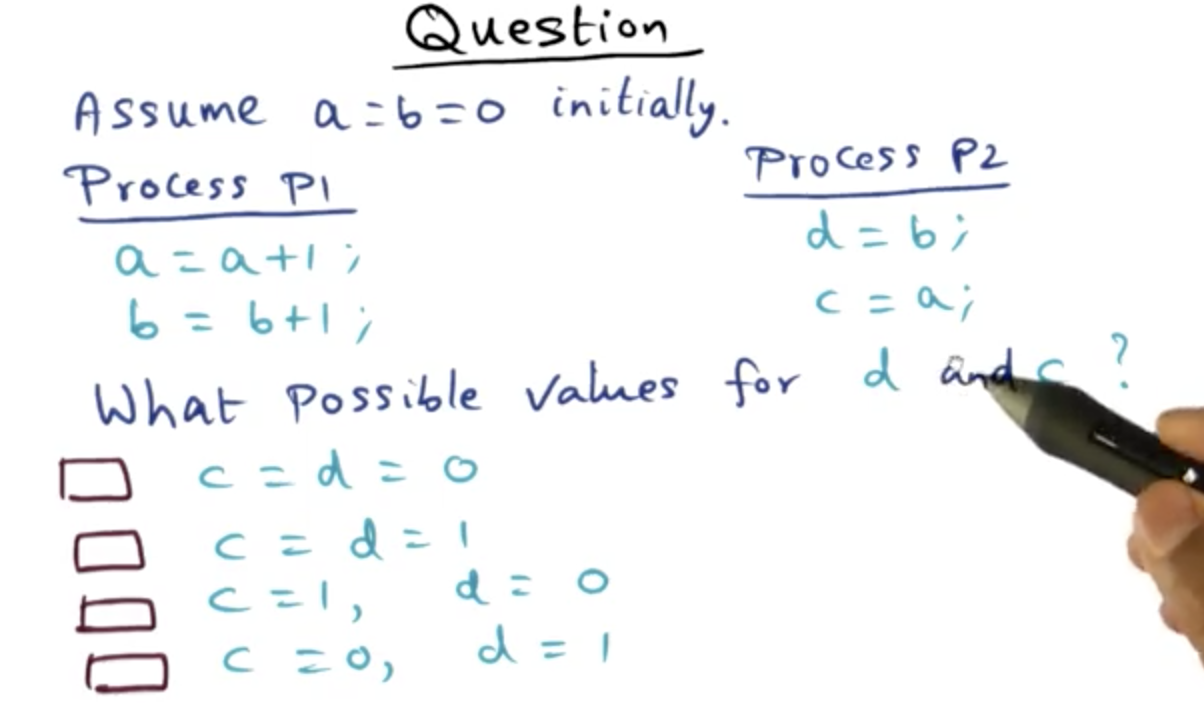 Question
Assume a=b=0 initially.
Process P1
Process P2
a = a+1;
b = b+1;
d = b;
c = a;
What possible values for d and c ?
c = d = 0
c = d = 1
c = 1, d = 0
c = 0, d = 1